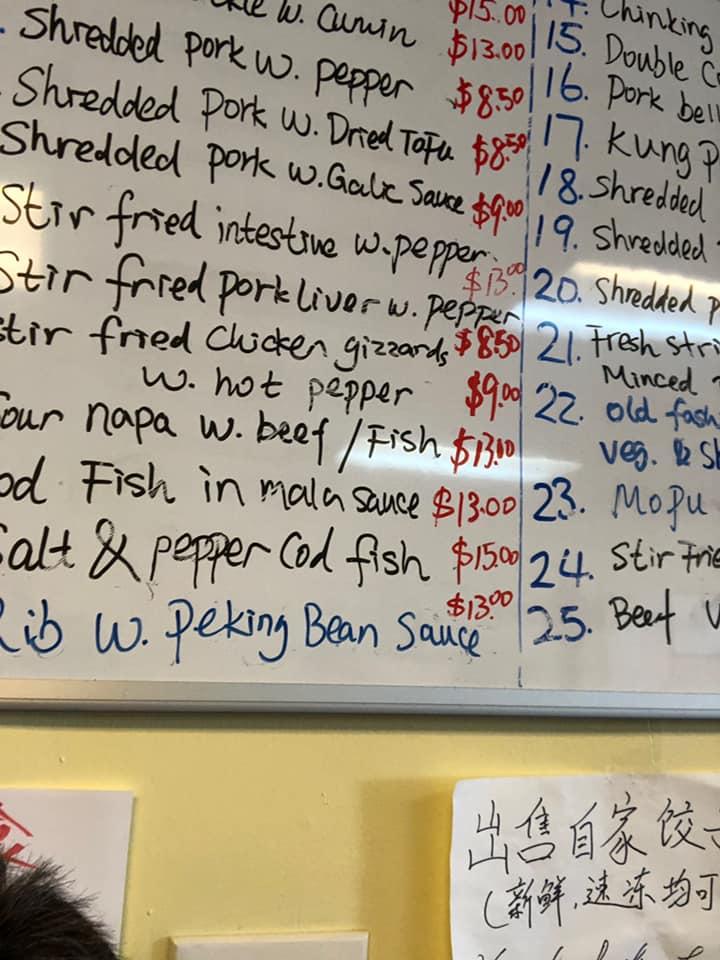 w. Cumin $15.00
Shredded pork w. pepper $13.00
Shredded Pork w. Dried Tofu $8.50
Shredded pork w. Galic Sauce $8.50
Stir fried intestine w. pepper $9.00
Stir fried pork liver w. pepper $13.00
stir fried chicken gizzards $8.50
w. hot pepper $9.00
our napa w. beef / Fish $13.00
od Fish in mala sauce $13.00
Salt & pepper Cod fish $15.00
Rib w. Peking Bean Sauce $13.00
14. Chinking
15. Double C
16. Pork bell
17. Kung P
18. Shredded
19. Shredded
20. Shredded p
21. Fresh stri
Minced
22. old fash
veg. & sh
23. Mopu
24. Stir Frie
25. Beef
出售自家饺子
(新鲜,速冻均可